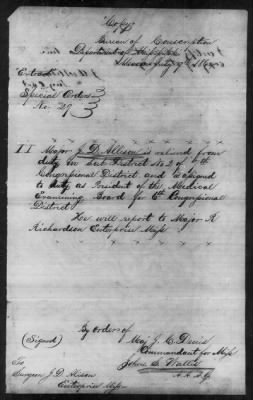 Copy
Bureau of Conscription
Department of
July 9th 186
Extract
Special Orders
No. 29
II Major J. D. Allison is relieved from
duty in Sub District No 3 of 6th
Congressional District and is assigned
to duty as President of the Medical
Examining Board for 6th Congressional
District
He will report to Major R
Richardson Enterprise Miss
By order of
(Signed) Maj J. C. Denis
Commandant for Miss
John S. Wallis
A. A. A. G.
To
Surgeon J D Alison
Enterprise Miss